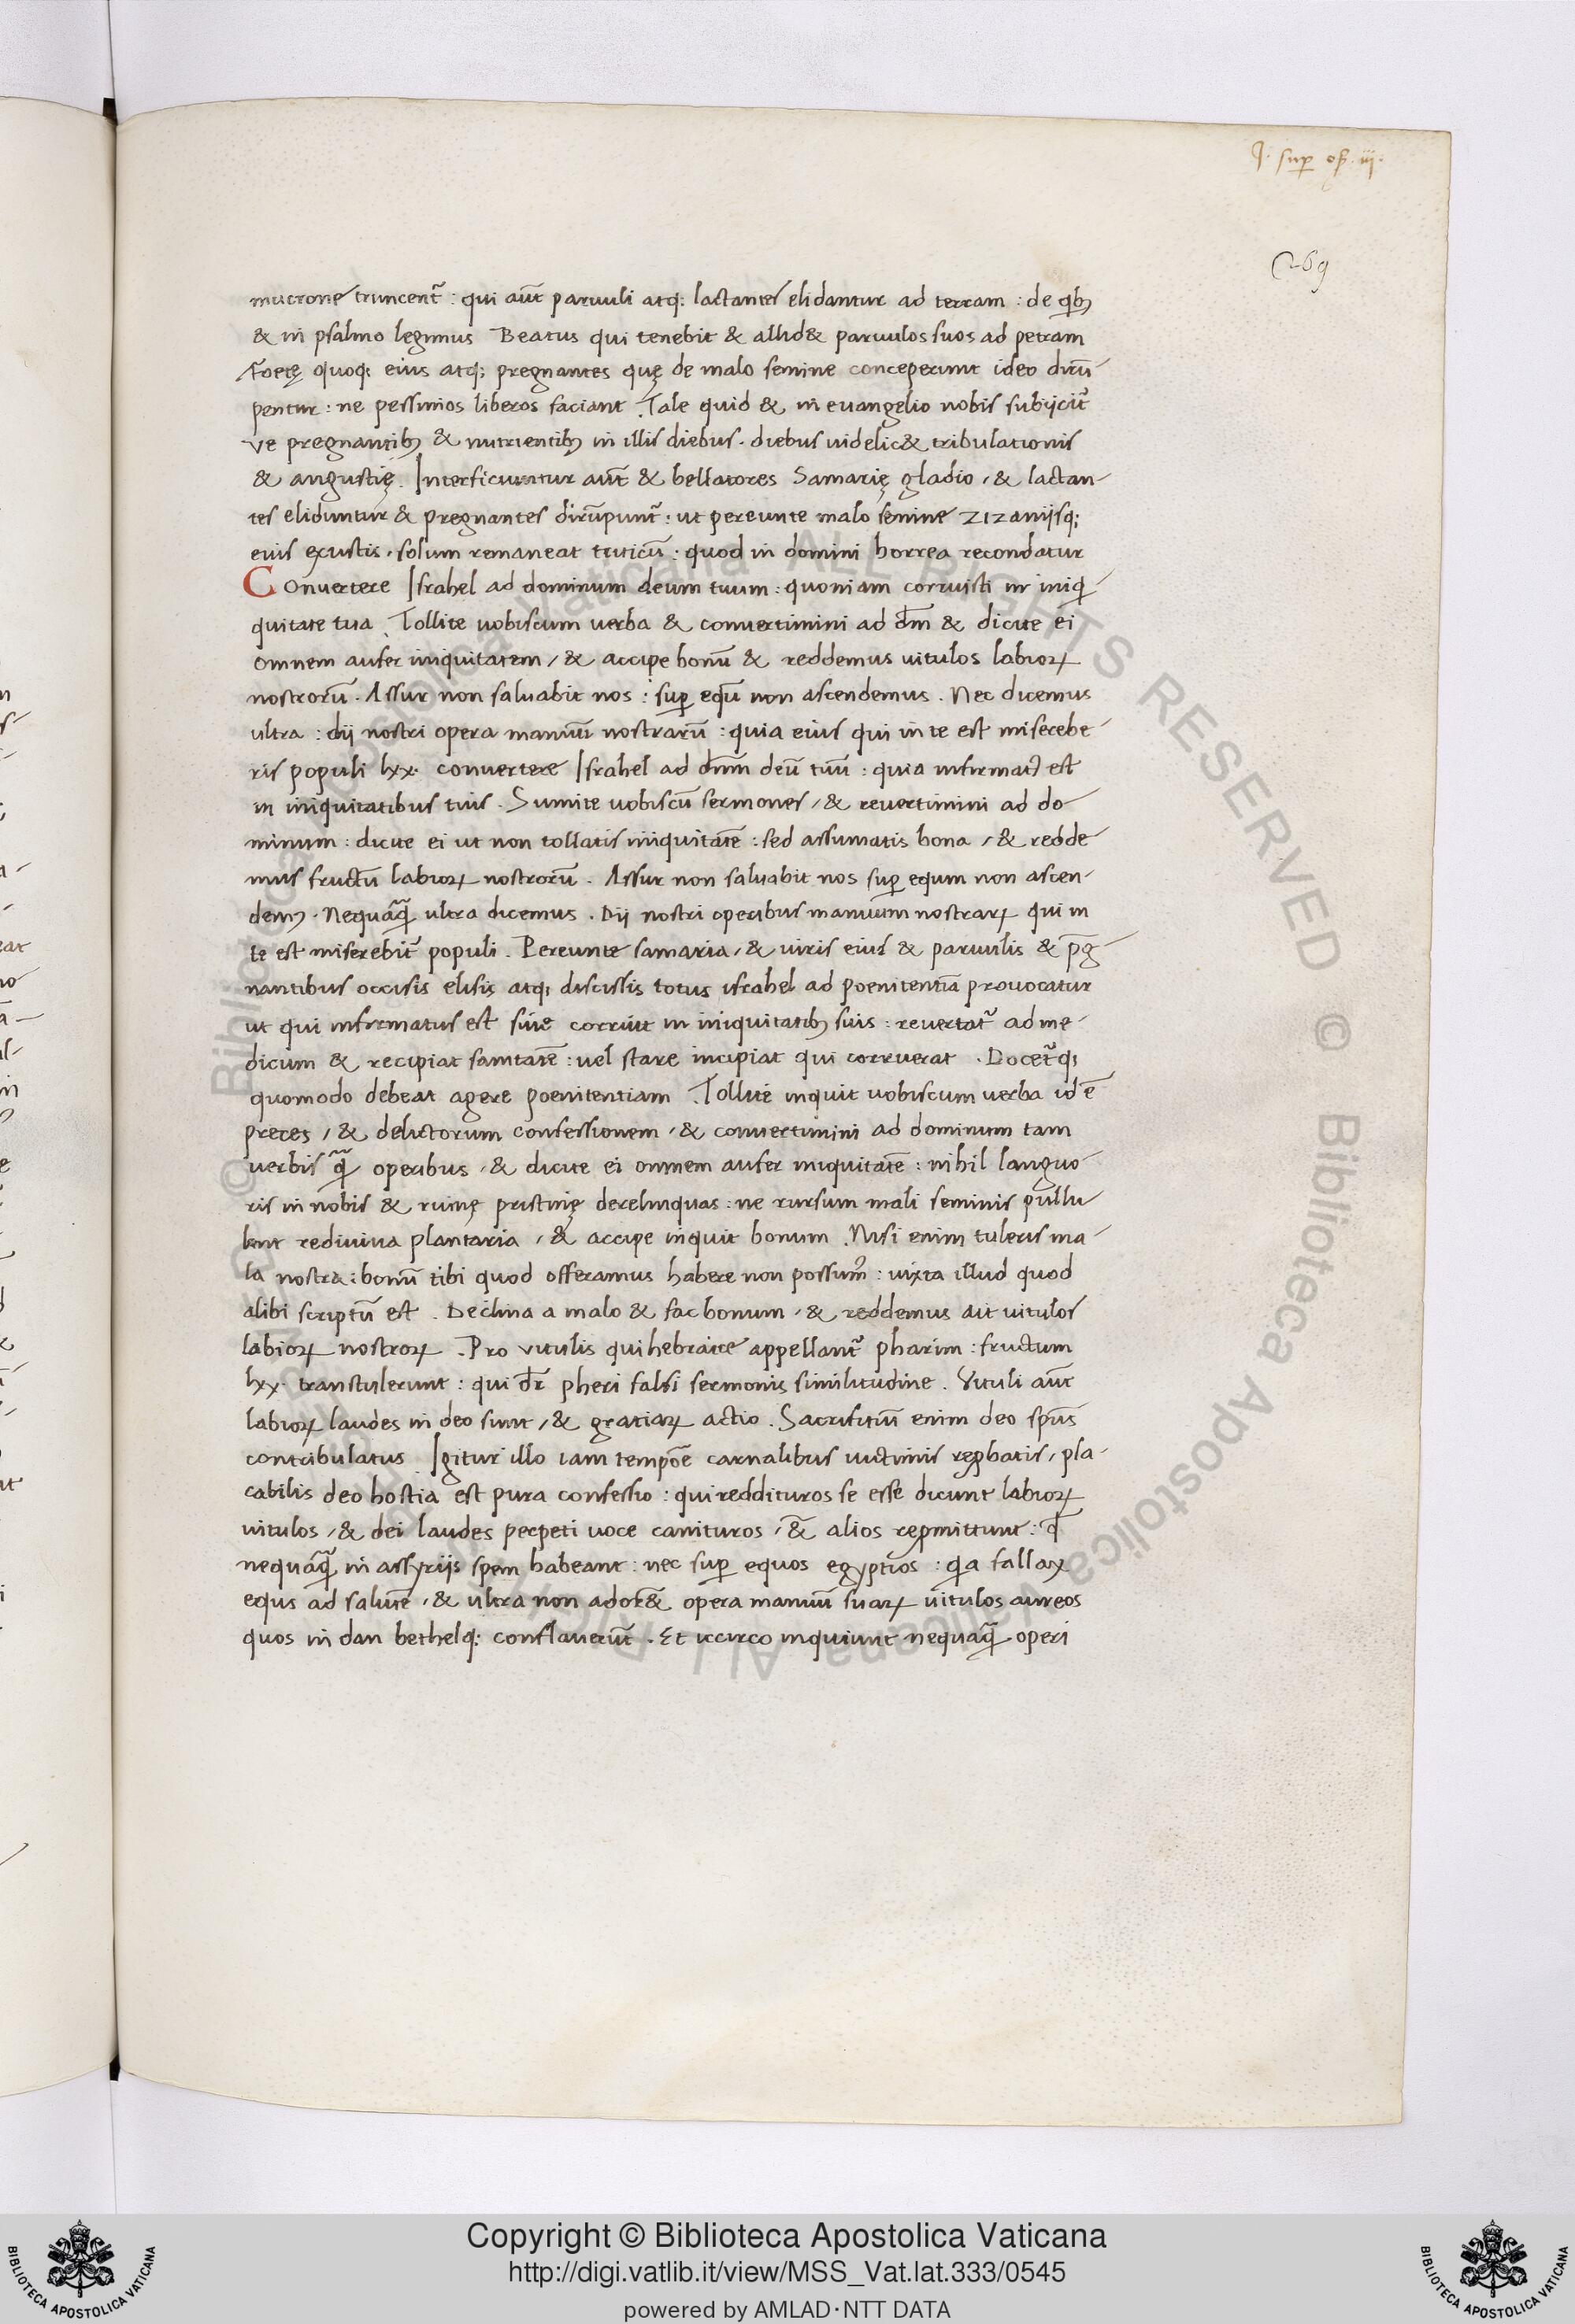 q. sup os. iij.
269
mucrone truncent᷑ : qui aut̄ paruuli atq; lactantes elidantur ad terram : de qb;
& in psalmo legimus Beatus qui tenebit & allid& paruulos suos ad petram
Foetę quoq; eius atq; pregnantes quę de malo semine conceperunt ideo dirū-
pentur : ne pessimos liberos faciant . Tale quid & in euangelio nobis subijcit᷑
ve pregnantib; & nutrientib; in illis diebus . diebus uidelic& tribulationis
& angustię . Interficiuntur aut̄ & bellatores Samarię gladio , & lactan-
tes eliduntur & pregnantes dirūpunt᷑ : ut pereunte malo semine zizanijsq;
eius exustis , solum remaneat triticū : quod in domini horrea recondatur
Conuertere Israhel ad dominum deum tuum : quoniam corruisti in iniq-
quitate tua . Tollite uobiscum uerba & conuertimini ad dm̄ & dicite ei
omnem aufer iniquitatem , & accipe bonū & reddemus uitulos labioꝝ
nostrorū . Assur non saluabit nos : suꝑ equū non ascendemus . Nec dicemus
ultra : dij nostri opera manuū nostrarū : quia eius qui in te est miserebe-
ris populi lxx . conuertere Israhel ad dn̄m deū tuū : quia infirmatꝰ est
in iniquitatibus tuis . Sumite uobiscū sermones , & reuertimini ad do-
minum : dicite ei ut non tollatis iniquitatē : sed assumatis bona , & redde-
mus fructū labioꝝ nostrorū . Assur non saluabit nos suꝑ equm non ascen-
dem; . Nequaq̄ ultra dicemus . Dij nostri operibus manuum nostraꝝ qui in
te est miserebit᷑ populi . Pereunte samaria , & uiris eius & paruulis & p̄g-
nantibus occisis elisis atq; discissis totus israhel ad poenitentiā prouocatur
ut qui infirmatus est siue corruit in iniquitatib; suis : reuertat᷑ ad me-
dicum & recipiat sanitatē : uel stare incipiat qui corruerat . Docet᷑q;
quomodo debeat agere poenitentiam . Tollite inquit uobiscum uerba id ē
preces , & delictorum confessionem , & conuertimini ad dominum tam
uerbis q̄ operibus , & dicite ei omnem aufer iniquitatē : nihil languo-
ris in nobis & ruinę pristinię derelinquas : ne rursum mali seminis pullu-
lent rediuiua plantaria , & accipe inquit bonum . Nisi enim tuleris ma-
la nostra : bonū tibi quod offeramus habere non possumꝰ : iuxta illud quod
alibi scriptū est . Declina a malo & fac bonum , & reddemus ait uitulos
labioꝝ nostroꝝ . Pro vitulis qui hebraice appellant᷑ pharim : fructum
lxx . transtulerunt : qui dr̄ pheri falsi sermonis similitudine . Vituli aut̄
labioꝝ laudes in deo sunt , & gratiaꝝ actio . Sacrifitiū enim deo sp̄us
contribulatus Igitur illo iam tempoē carnalibus uictimis reꝓbatis , pla-
cabilis deo hostia est pura confessio : qui reddituros se esse dicunt labioꝝ
uitulos , & dei laudes perpeti uoce canituros , &̄ alios reꝓmittunt : qd̄
nequaq̄ in assyrijs spem habeant : nec suꝑ equos egyptios : qa fallax
equs ad salutē , & ultra non ador& opera manuū suaꝝ uitulos aureos
quos in dan bethelq; conflauerūt . Et iccirco inquiunt nequaq̄ operi
© Biblioteca Apostolica Vaticana ALL RIGHTS RESERVED © Biblioteca Apostolica Vaticana ALL RIGHTS
Copyright © Biblioteca Apostolica Vaticana
http://digi.vatlib.it/view/MSS_Vat.lat.333/0545
powered by AMLAD·NTT DATA
BIBLIOTECA APOSTOLICA VATICANA
BIBLIOTECA APOSTOLICA VATICANA